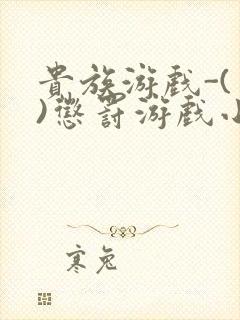 貴族游戲-(
)懲罰游戲小
寒兔